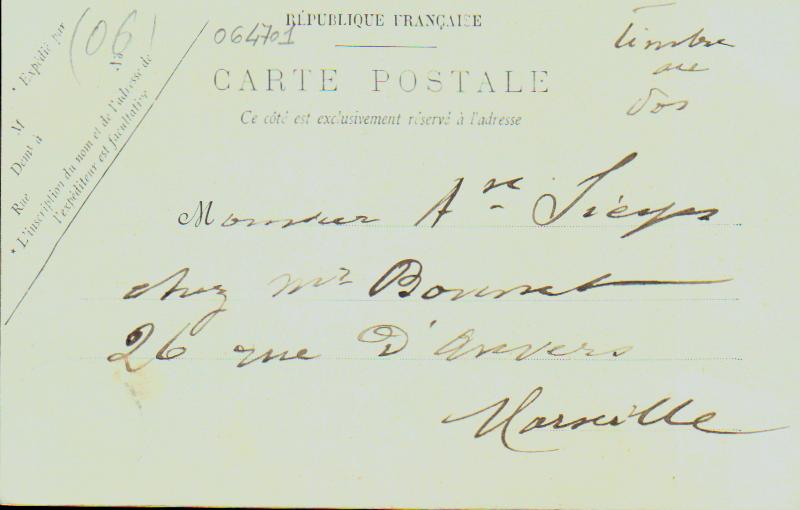 RÉPUBLIQUE FRANÇAISE
CARTE POSTALE
Ce côté est exclusivement réservé à l'adresse
* Expédié par
M
Demt à
Rue
No
* L'inscription du nom et de l'adresse de
l'expéditeur est facultative
(06)
064701
Timbre
au
dos
Monsieur Sieyes
chez Mr Bonnet
26 rue D'Anvers
Marseille